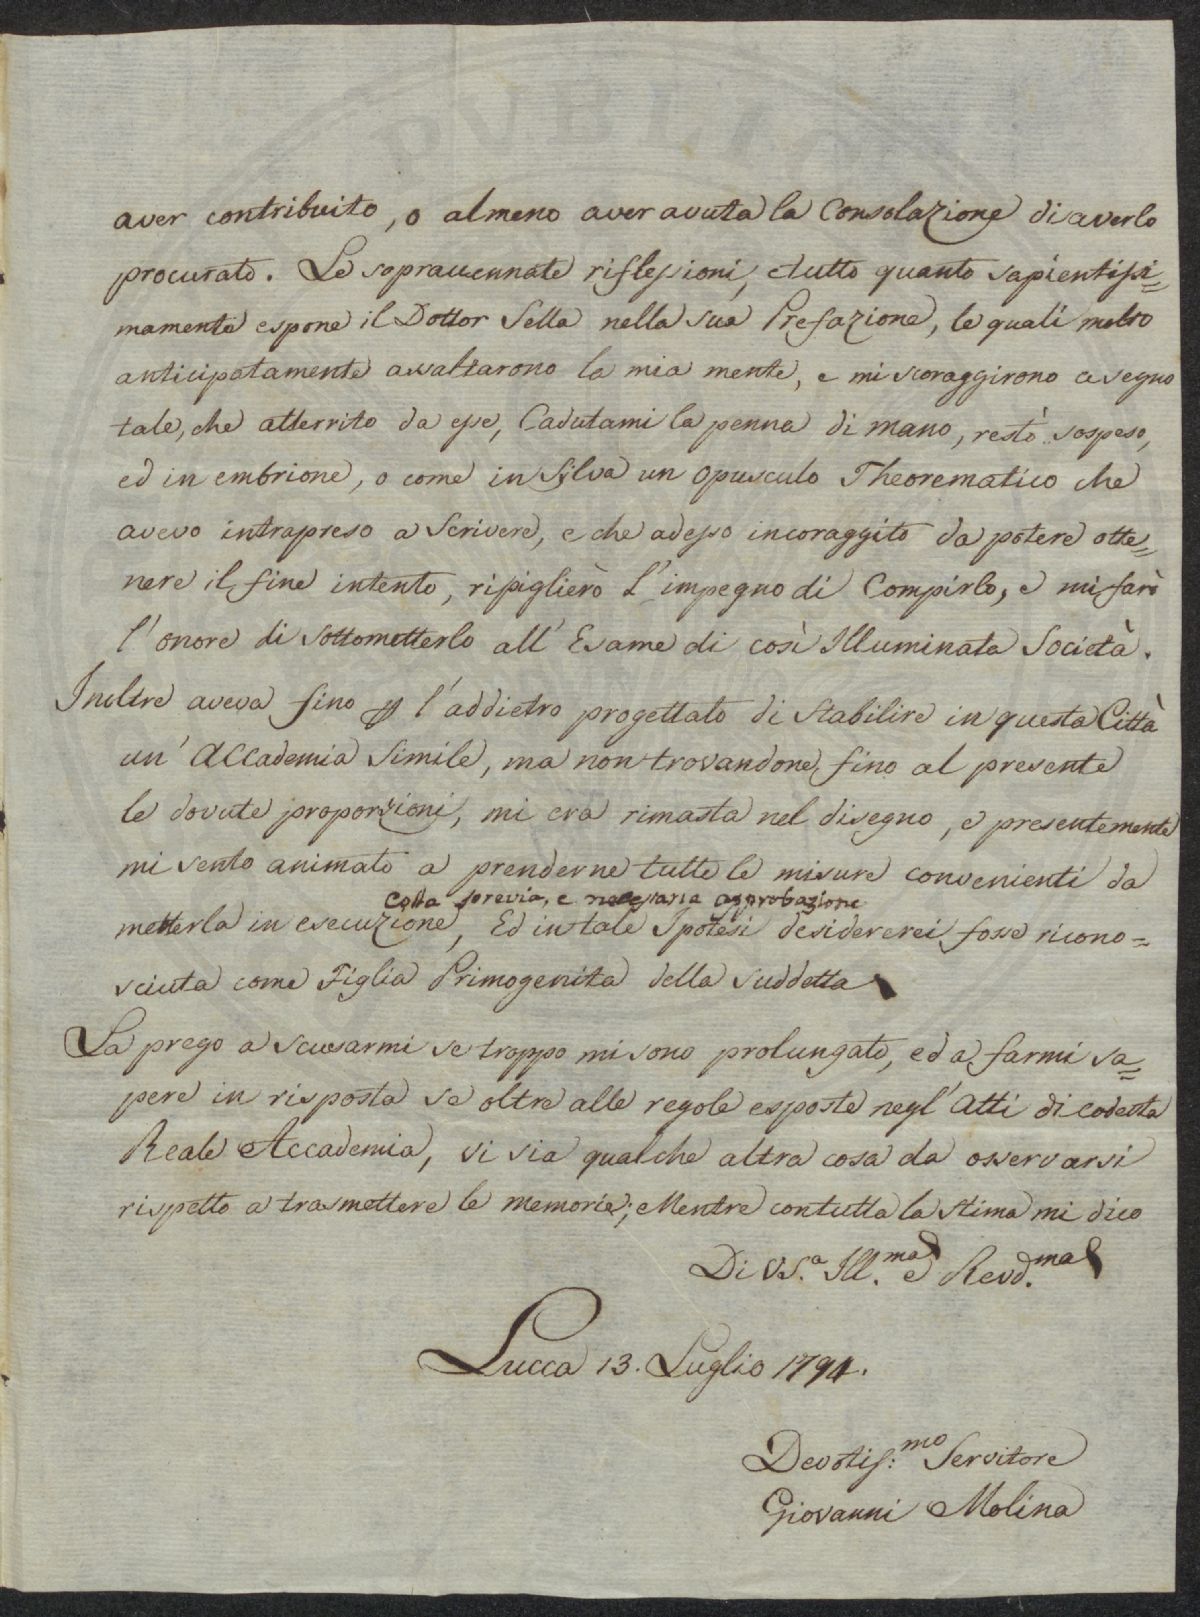 aver contribuito, o almeno aver avuta la Consolazione di averlo
procurato. Le sopraccennate riflessioni, e tutto quanto sapientissi=
mamente espone il Dottor Sella nella sua Prefazione, le quali molto
anticipatamente assaltarono la mia mente, e mi scoraggirono a segno
tale, che atterrito da esse, Cadutami la penna di mano, restò sospeso,
ed in embrione, o come in Silva un opusculo Theorematico che
avevo intrapreso a Scrivere, e che adesso incoraggito da potere otte=
nere il fine intento, ripiglierò l'impegno di Compirlo, e mi farò
l'onore di sottometterlo all'Esame di così Illuminata Società.
Inoltre aveva fino p l'addietro progettato di Stabilire in questa Città
un'Accademia Simile, ma non trovandone fino al presente
le dovute proporzioni, mi era rimasta nel disegno, e presentemente
mi sento animato a prenderne tutte le misure convenienti da
colla previa, e necessaria approbazione
metterla in esecuzione, Ed in tale Ipotesi desidererei fosse ricono=
sciuta come Figlia Primogenita della suddetta
La prego a scusarmi se troppo mi sono prolungato, ed a farmi sa=
pere in risposta se oltre alle regole esposte negl'Atti di codesta
Reale Accademia, vi sia qualche altra cosa da osservarsi
rispetto a trasmettere le memorie; Mentre con tutta la stima mi dico
Di VS.a Ill.ma e Revd.ma
Lucca 13. Luglio 1794.
Devotis:mo Servitore
Giovanni Molina